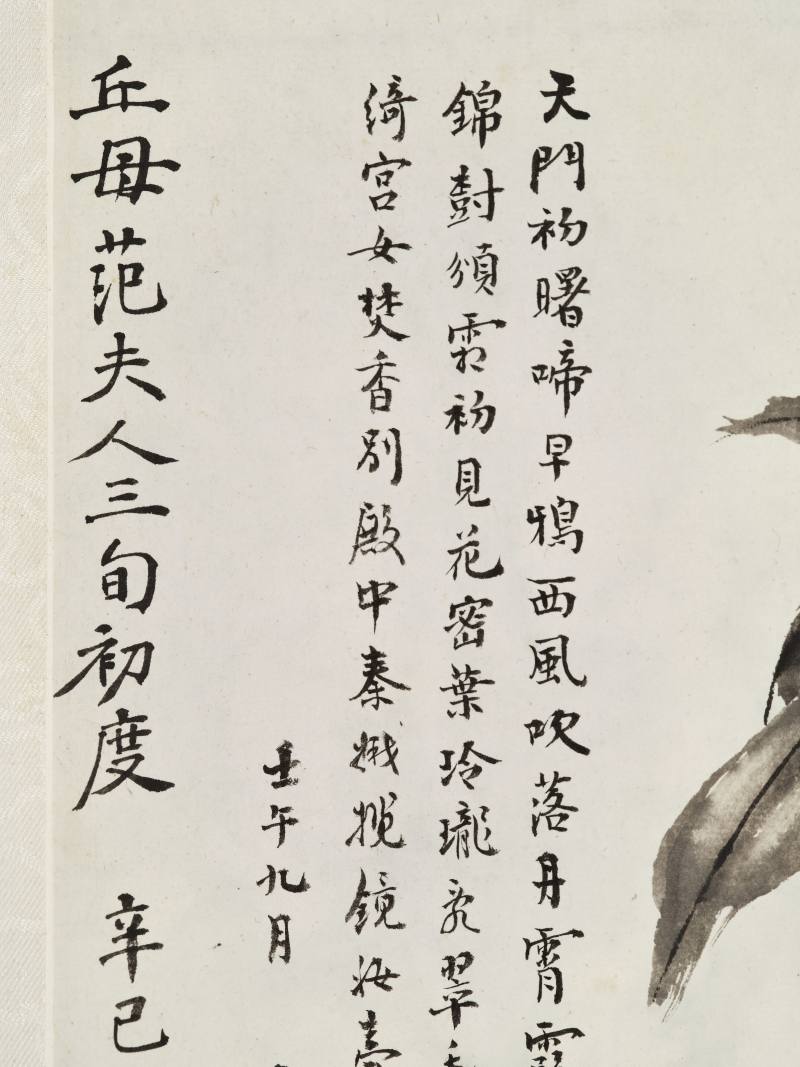 天門初曙啼早鴉西風吹落丹霄霞
錦樹須霜初見花密葉玲瓏亂翠
綺宮女焚香別殿中秦娥攬鏡妝臺
壬午九月
丘母范夫人三旬初度 辛巳